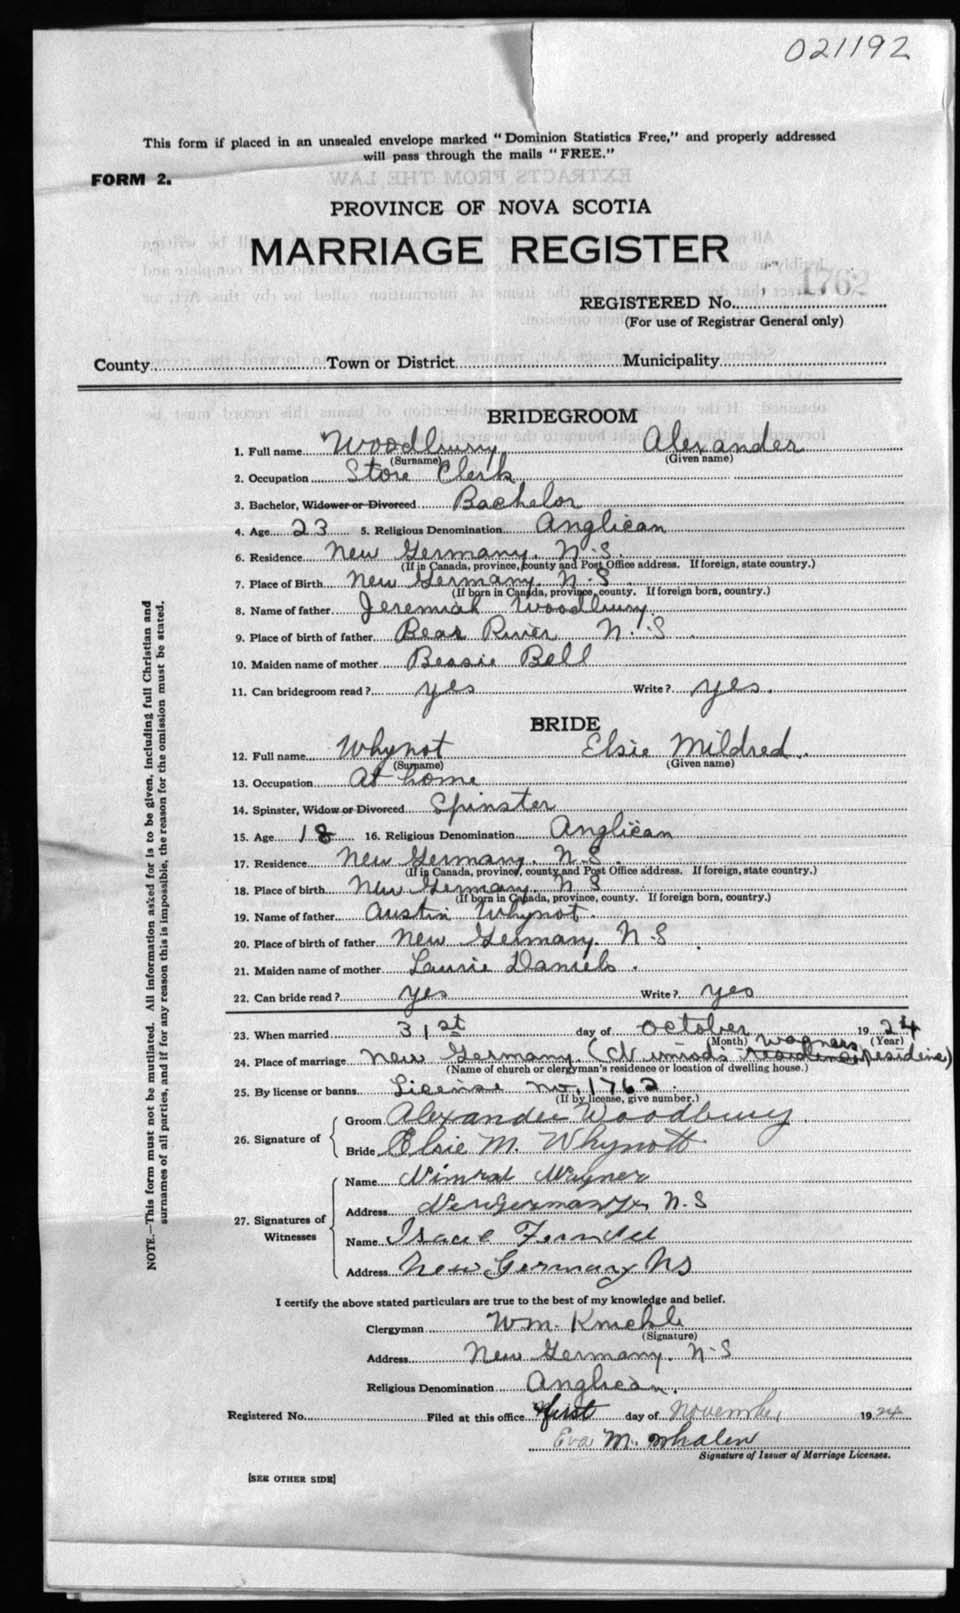 021192
This form if placed in an unsealed envelope marked "Dominion Statistics Free," and properly addressed
will pass through the mails "FREE."
FORM 2.
PROVINCE OF NOVA SCOTIA
MARRIAGE REGISTER
REGISTERED No. 1762
(For use of Registrar General only)
County Town or District Municipality
BRIDEGROOM
1. Full name Woodbury Alexander
(Surname) (Given name)
2. Occupation Store Clerk
3. Bachelor, Widower or Divorced Bachelor
4. Age 23 5. Religious Denomination Anglican
6. Residence New Germany. N.S.
(If in Canada, province, county and Post Office address. If foreign, state country.)
7. Place of Birth New Germany. N.S.
(If born in Canada, province, county. If foreign born, country.)
8. Name of father Jeremiah Woodbury
9. Place of birth of father Bear River N.S
10. Maiden name of mother Bessie Bell
11. Can bridegroom read? yes Write? yes.
BRIDE
12. Full name Whynot Elsie Mildred.
(Surname) (Given name)
13. Occupation At home
14. Spinster, Widow or Divorced Spinster
15. Age 18 16. Religious Denomination Anglican
17. Residence New Germany. N.S.
(If in Canada, province, county and Post Office address. If foreign, state country.)
18. Place of birth New Germany. N S
(If born in Canada, province, county. If foreign born, country.)
19. Name of father Austin Whynot.
20. Place of birth of father New Germany. N.S.
21. Maiden name of mother Laurie Daniels.
22. Can bride read? yes Write? yes
23. When married 31st day of October 1924
(Month) (Year)
Wagners
24. Place of marriage New Germany. (Nimrod's residence residence)
(Name of church or clergyman's residence or location of dwelling house.)
25. By license or banns License no. 1762.
(If by license, give number.)
26. Signature of Groom Alexander Woodbury.
Bride Elsie M. Whynott
27. Signatures of Witnesses
Name Nimrod Wagner
Address New Germany, N.S
Name Isaac
Address New Germany NS
I certify the above stated particulars are true to the best of my knowledge and belief.
Clergyman Wm.
(Signature)
Address New Germany. N.S
Religious Denomination Anglican.
Registered No. Filed at this office first day of November 1924
Eva M. Whalen
Signature of Issuer of Marriage Licenses.
[SEE OTHER SIDE]
NOTE.—This form must not be mutilated. All information asked for is to be given, including full Christian and
surnames of all parties, and if for any reason this is impossible, the reason for the omission must be stated.